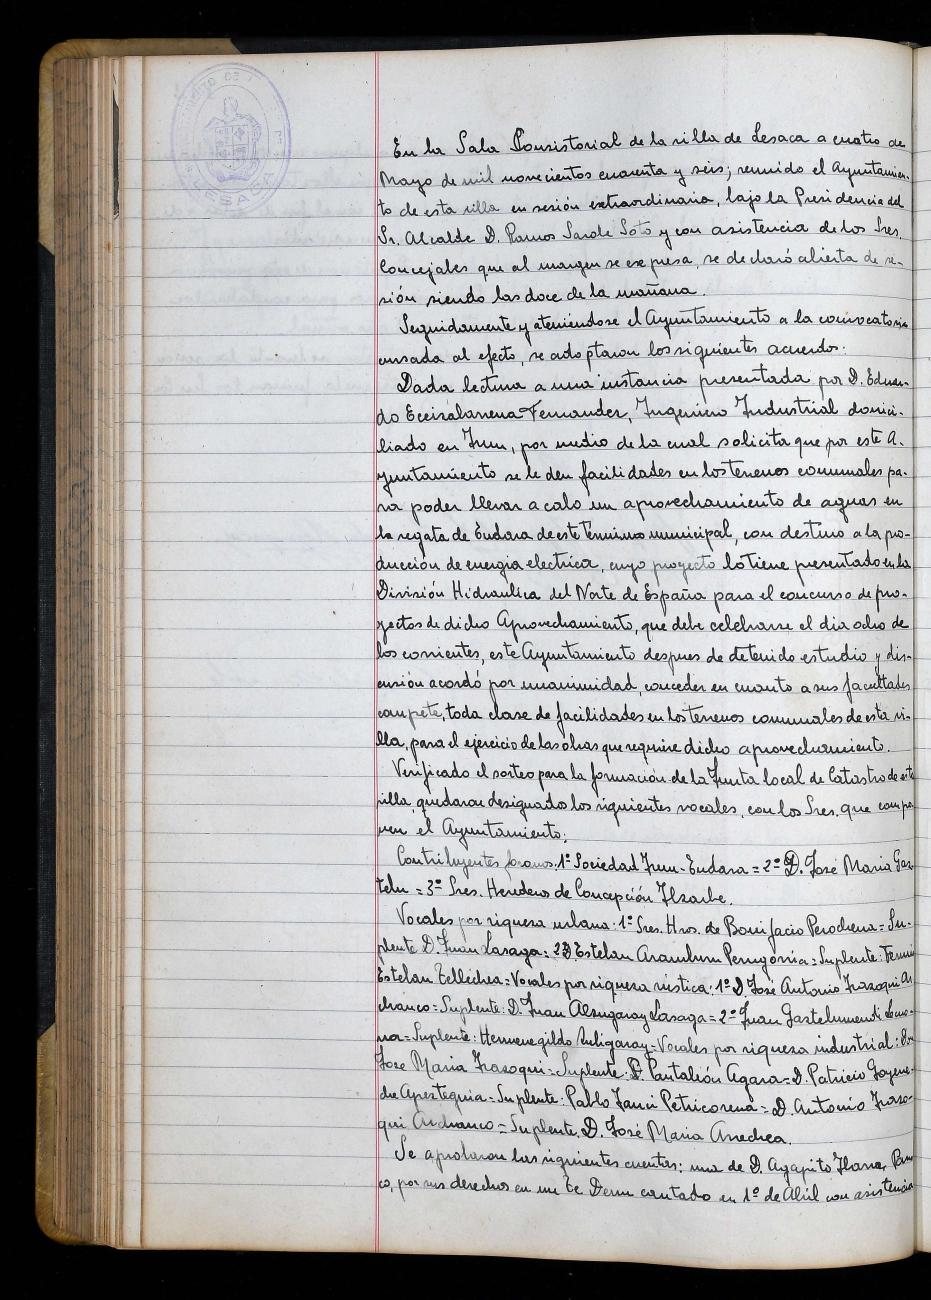 LESACA
En la Sala Consistorial de la villa de Lesaca a cuatro de
Mayo de mil novecientos cuarenta y seis; reunido el Ayuntamien-
to de esta villa en sesión extraordinaria, bajo la Presidencia del
Sr. Alcalde D. Ramos Sarde Soto y con asistencia de los Sres.
Concejales que al margen se expresa, se declaró abierta de se-
sión siendo las doce de la mañana.
Seguidamente y ateniéndose el Ayuntamiento a la convocatoria
cursada al efecto, se adoptaron los siguientes acuerdos:
Dada lectura a una instancia presentada por D. Eduar-
do Eceizabarrena Fernandez, Ingeniero Industrial domici-
liado en Irun, por medio de la cual solicita que por este A-
yuntamiento se le den facilidades en los terrenos comunales pa-
ra poder llevar a cabo un aprovechamiento de aguas en
la regata de Endara de este termino municipal, con destino a la pro-
ducción de energia electrica, cuyo proyecto lo tiene presentado en la
División Hidraulica del Norte de España para el concurso de pro-
yectos de dicho Aprovechamiento, que debe celebrarse el dia ocho de
los corrientes, este Ayuntamiento despues de detenido estudio y dis-
cusión acordó por unanimidad, conceder en cuanto a sus facultades
compete, toda clase de facilidades en los terrenos comunales de esta vi-
lla, para el ejercicio de las obras que requiere dicho aprovechamiento.
Verificado el sorteo para la formación de la Junta local de Catastro de esta
villa, quedaron designados los siguientes vocales, con los Sres. que compo
nen el Ayuntamiento:
Contribuyentes foranos: 1º Sociedad Irun-Endara = 2º D. José Maria Gaz
telu = 3º Sres. Herederos de Concepción Ilzarbe.
Vocales por riqueza urbana: 1º Sres. Hros. de Bonifacio Perochena = Su-
plente D. Juan Lasaga = 2º D. Esteban Aramburu Perugorria = Suplente: Fermin
Esteban Tellechea = Vocales por riqueza rústica: 1º D. José Antonio Irazoqui An
chanco = Suplente: D. Juan Alzugaray Lasaga = 2º Juan Gaztelumendi
= Suplente: Hermenegildo Zubigaray = Vocales por riqueza industrial: Don
José Maria Irazoqui = Suplente: D. Pantaleón Agara = D. Patricio Goyene-
che Apezteguia = Suplente: Pablo Janci Petricorena = D. Antonio Irazo-
qui Andranco = Suplente, D. José Maria Arrechea.
Se aprobaron las siguientes cuentas: una de D. Agapito Ilarra, Parro
co, por sus derechos en un Te Deum cantado en 1º de Abril con asistencia